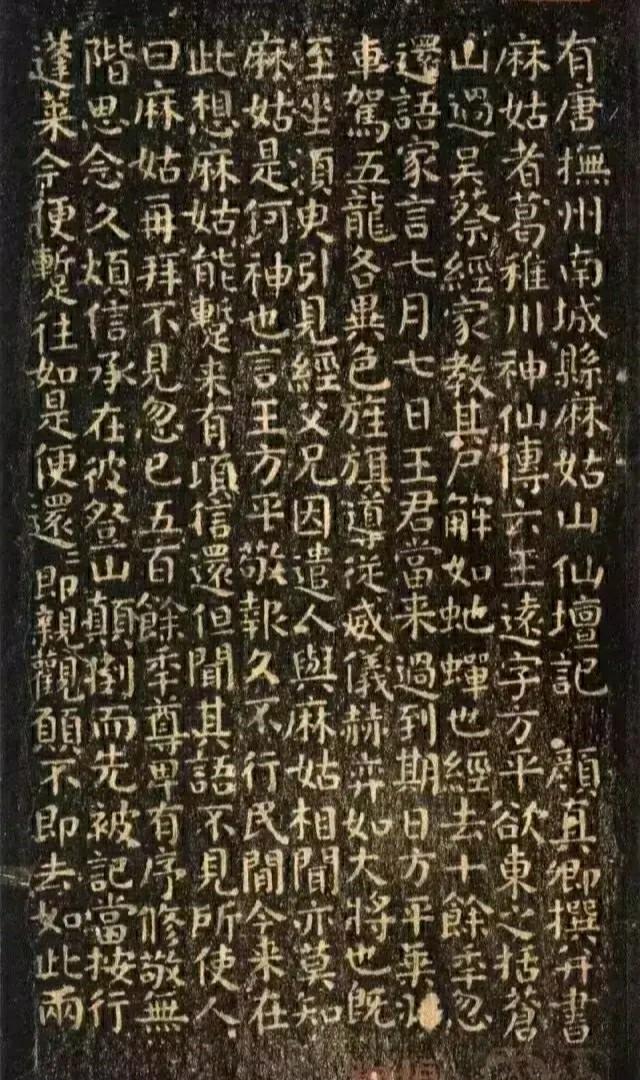 有唐撫州南城縣麻姑山仙壇記 顏真卿撰并書
麻姑者葛稚川神仙傳云王遠字方平欲東之括蒼
山過吳蔡經家教其尸解如虵蟬也經去十餘季忽
還語家言七月七日王君當来過到期日方平乘羽
車駕五龍各異色旌旗導從威儀赫弈如大將也既
至坐須臾引見經父兄因遣人與麻姑相聞亦莫知
麻姑是何神也言王方平敬報久不行民間今来在
此想麻姑能蹔来有頃信還但聞其語不見所使人
曰麻姑再拜不見忽已五百餘季尊卑有序修敬無
階思念久煩信承在彼登山顛倒而先被記當按行
蓬萊今便蹔往如是便還還即親觀願不即去如此兩